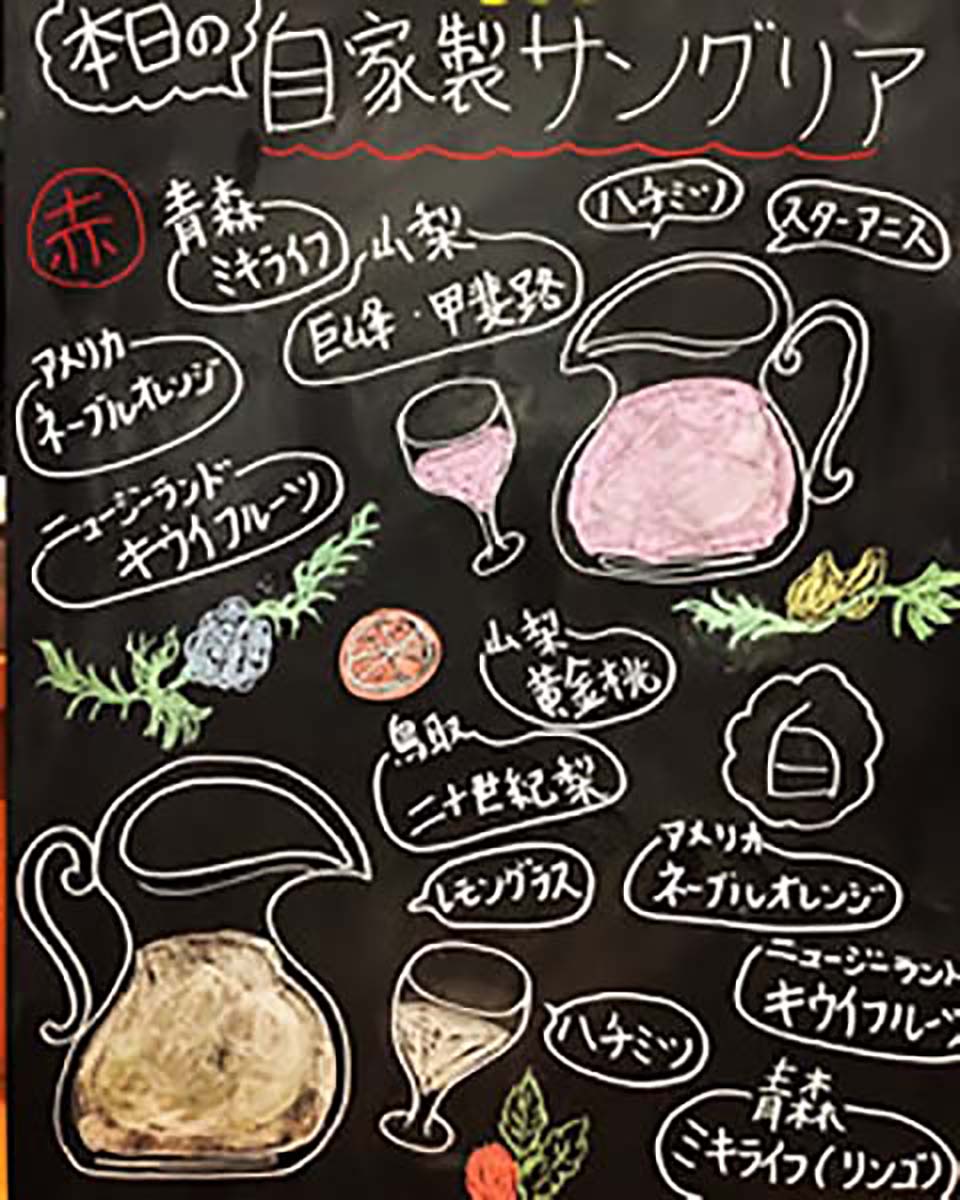 本日の
自家製サングリア
赤
青森
ミキライフ
山梨
巨峰・甲斐路
ハチミツ
スターアニス
アメリカ
ネーブルオレンジ
ニュージーランド
キウイフルーツ
山梨
黄金桃
鳥取
二十世紀梨
白
レモングラス
アメリカ
ネーブルオレンジ
ニュージーランド
キウイフルーツ
ハチミツ
青森
ミキライフ(リンゴ)